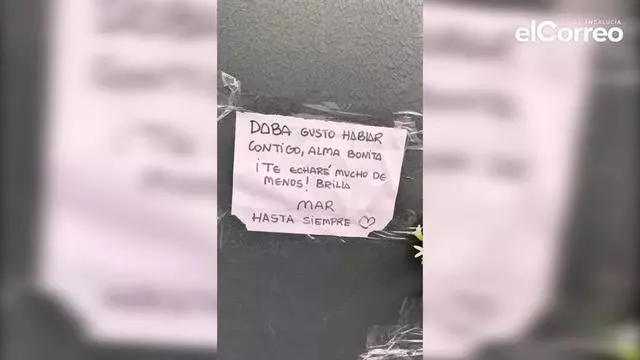 DE ANDALUCÍA
elCorreo
DABA GUSTO HABLAR
CONTIGO, ALMA BONITA
¡TE ECHARÉ MUCHO DE
MENOS! BRILLA
MAR
HASTA SIEMPRE